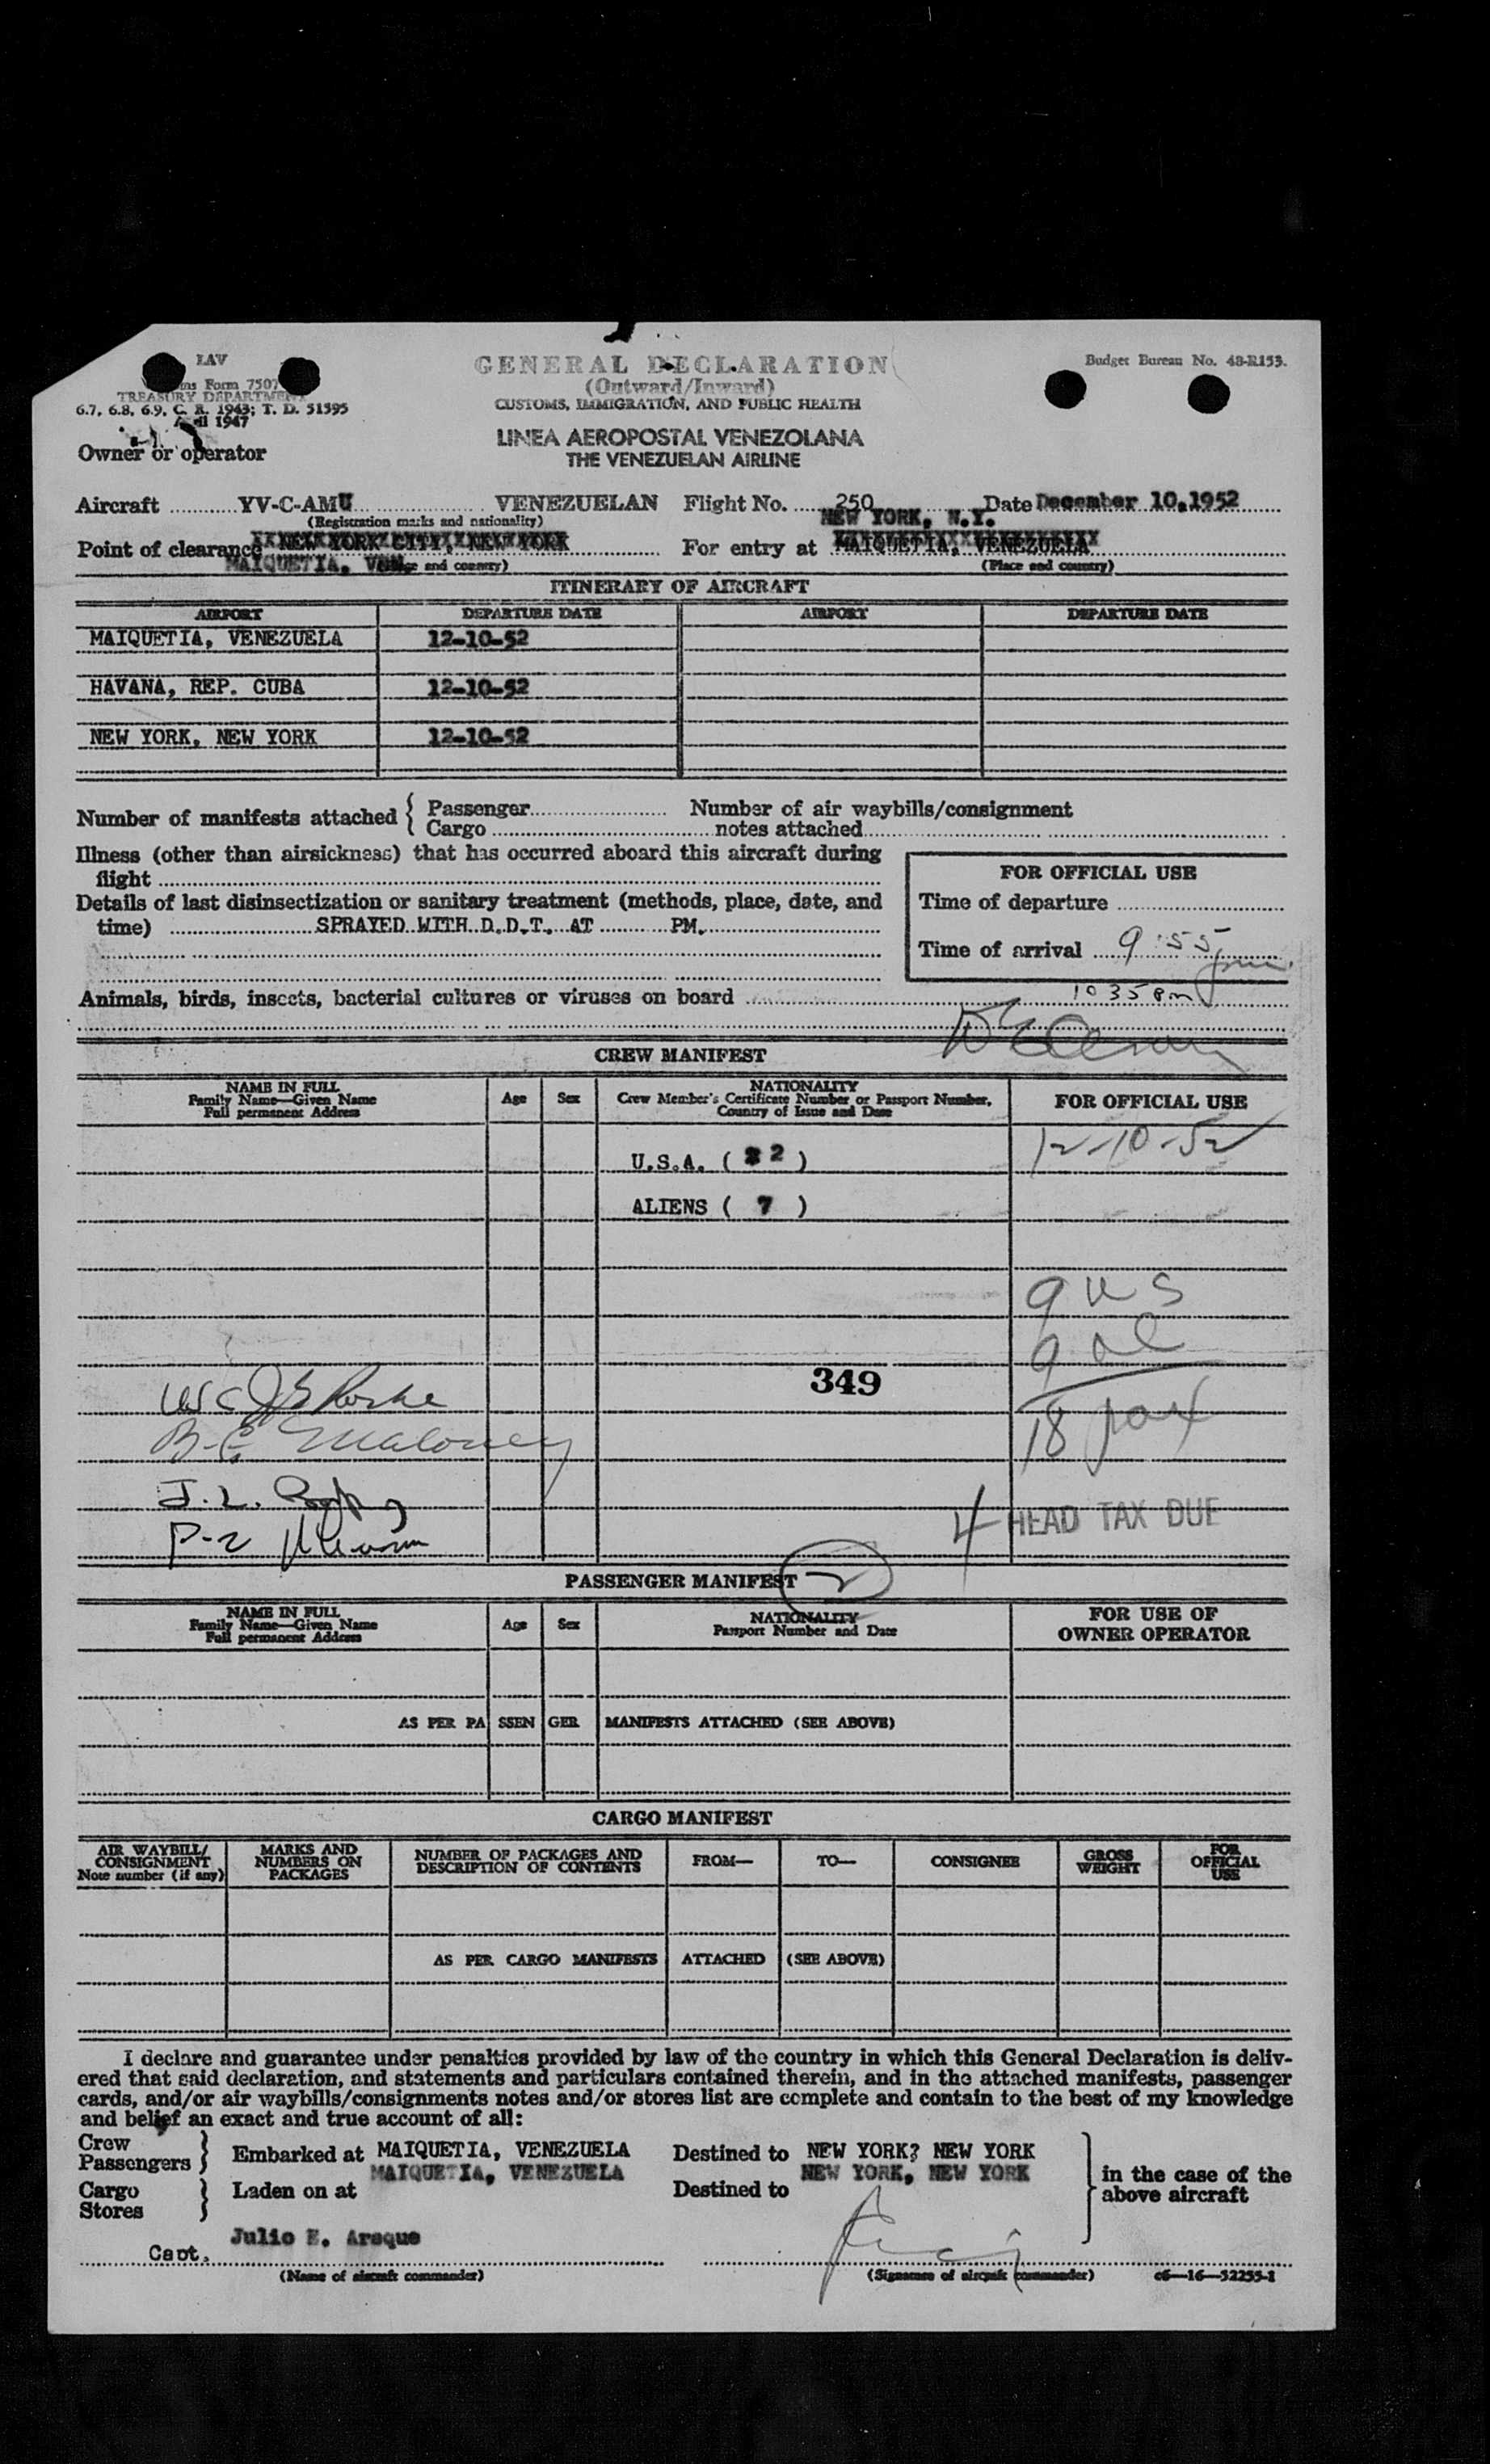 LAV
Form 7507
TREASURY DEPARTMENT
6.7, 6.8, 6.9, C. R. 1943; T. D. 51595
April 1947
GENERAL DECLARATION
(Outward/Inward)
CUSTOMS, IMMIGRATION, AND PUBLIC HEALTH
Budget Bureau No. 48-R153.
LINEA AEROPOSTAL VENEZOLANA
THE VENEZUELAN AIRLINE
Owner or operator
Aircraft YV-C-AMU VENEZUELAN Flight No. 250 Date December 10,1952
(Registration marks and nationality)
NEW YORK, N.Y.
Point of clearance NEW YORK CITY, NEW YORK For entry at MAIQUETIA, VENEZUELA
MAIQUETIA, and country) (Place and country)
ITINERARY OF AIRCRAFT
AIRPORT DEPARTURE DATE AIRPORT DEPARTURE DATE
MAIQUETIA, VENEZUELA 12-10-52
HAVANA, REP. CUBA 12-10-52
NEW YORK, NEW YORK 12-10-52
Number of manifests attached { Passenger Number of air waybills/consignment
Cargo notes attached
Illness (other than airsickness) that has occurred aboard this aircraft during
flight
Details of last disinsectization or sanitary treatment (methods, place, date, and
time) SPRAYED WITH D.D.T. AT PM.
FOR OFFICIAL USE
Time of departure
Time of arrival 9:55 pm.
10 35 pm
Animals, birds, insects, bacterial cultures or viruses on board
CREW MANIFEST
NAME IN FULL
Family Name—Given Name
Full permanent Address
Age
Sex
NATIONALITY
Crew Member's Certificate Number or Passport Number,
Country of Issue and Date
FOR OFFICIAL USE
12-10-52
U.S.A. ( 2 )
ALIENS ( 7 )
9 US
9 al
349
18 pax
B. E. Maloney
J. L.
4 HEAD TAX DUE
PASSENGER MANIFEST 2
NAME IN FULL
Family Name—Given Name
Full permanent Address
Age
Sex
NATIONALITY
Passport Number and Date
FOR USE OF
OWNER OPERATOR
AS PER PASSENGER MANIFESTS ATTACHED (SEE ABOVE)
CARGO MANIFEST
AIR WAYBILL/
CONSIGNMENT
Note number (if any)
MARKS AND
NUMBERS ON
PACKAGES
NUMBER OF PACKAGES AND
DESCRIPTION OF CONTENTS
FROM—
TO—
CONSIGNEE
GROSS
WEIGHT
FOR
OFFICIAL
USE
AS PER CARGO MANIFESTS ATTACHED (SEE ABOVE)
I declare and guarantee under penalties provided by law of the country in which this General Declaration is deliv-
ered that said declaration, and statements and particulars contained therein, and in the attached manifests, passenger
cards, and/or air waybills/consignments notes and/or stores list are complete and contain to the best of my knowledge
and belief an exact and true account of all:
Crew
Passengers } Embarked at MAIQUETIA, VENEZUELA Destined to NEW YORK? NEW YORK
MAIQUETIA, VENEZUELA NEW YORK, NEW YORK
Cargo
Stores } Laden on at Destined to
in the case of the
above aircraft
Julio E. Araque
Capt.
(Name of aircraft commander) (Signature of aircraft commander) c6—16—52255-1